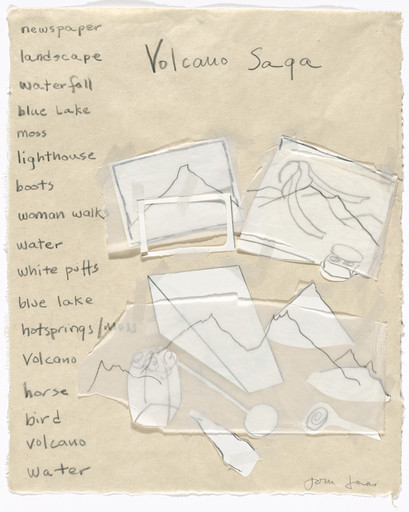 Volcano Saga
newspaper
landscape
waterfall
blue Lake
moss
lighthouse
boots
woman walks
water
white puffs
blue lake
hotsprings/
Volcano
horse
bird
volcano
water